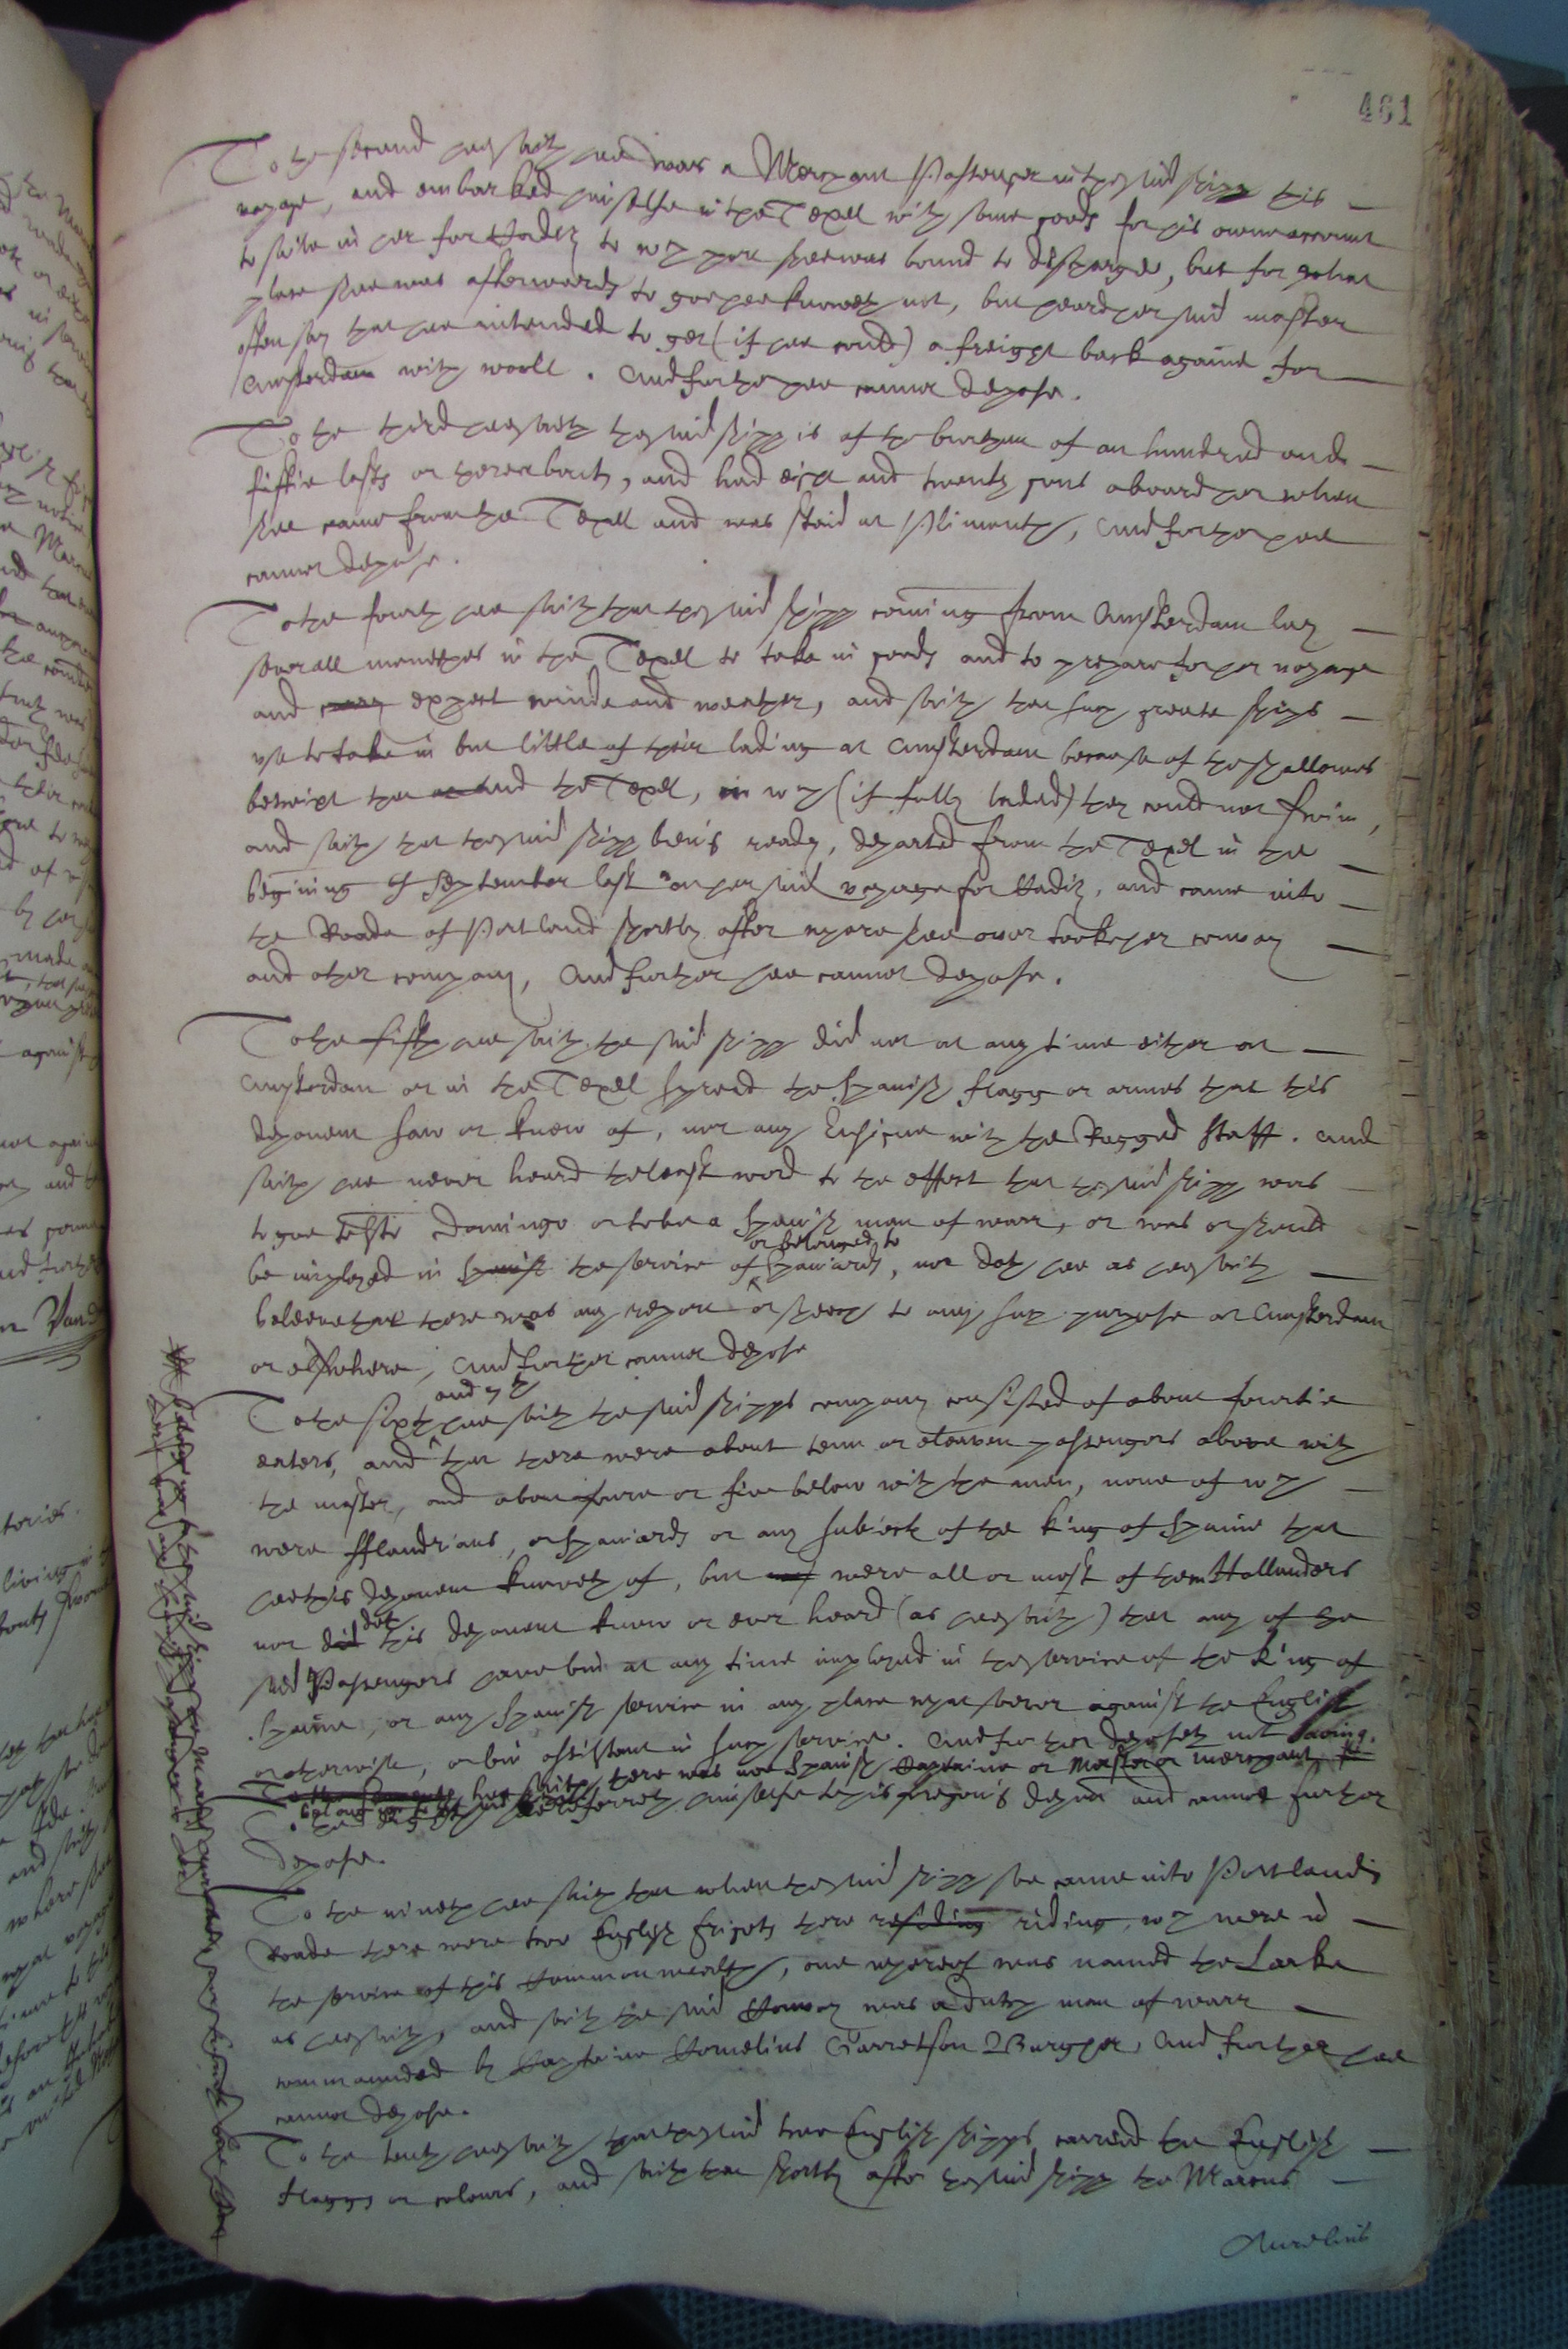 461
To the second hee saith hee was a Merchant Passenger in the said shipp this
voyage, and embarked himselfe in the Texell with some goods for his owne accomt
to saile in her for Cadiz to wch port shee was bound to discharge, but for what
place shee was afterwards to goe hee knoweth not, but heard her said master
often say that hee intended to get (if hee could) a freight back againe for
Amsterdam with wooll. And further hee cannot depose.
To the third hee saith the said shipp is of the burthen of an hundred and
fiftie lasts or thereabouts, and had eight and twenty guns aboard her when
shee came from the Texell and was staid at Plimouth, And further hee
cannot depose.
To the fourth hee saith that the said shipp coming from Amsterdam lay
severall monethes in the Texell to take in goods and to prepare for her voyage
and expect winde and weather, and saith that such greate shipps
use to take in but little of their lading at Amsterdam because of the shallowes
betwixt that and the Texel, in wch (if fully laded) they could not swim,
and saith that the said shipp being ready, departed from the Texel in the
begining of September last on her said voyage for Cadiz, and came into
the Roade of Portland shortly after where shee over tooke her convoy
and other company, And further hee cannot depose.
To the fifth hee saith the said shipp did not at any time either at
Amsterdam or in the Texel spread the Spanish flagg or armes that this
deponent saw or knew of, nor any Ensigne with the Ragged staff. And
saith hee never heard the least word to the effect that the said shipp was
to goe to Sto Domingo or to be a Spanish man of warr, or was or should
be imployed in Spanish the service of or belonged to Spaniards, nor doth hee as hee saith
beleeve that there was any report or speech to any such purpose at Amsterdam
or elsewhere, And further cannot depose
To the sixth hee saith the said shipps company consisted of about fourtie
eaters, and and saith that there were about tenn or eleaven passengers above with
the master, and about foure or five below with the men, none of wch
were fflandrians, or Spaniards or any subiects of the king of Spaine that
hee this deponent knoweth of, but were all or most of them Hollanders
nor did doth this deponent know or ever heard (as hee saith) that any of the
said Passengers have bin at any time imployed in the service of the King of
Spaine, or any Spanish service in any place whatsoever against the English
or otherwise, or bin assistant in such service. And further deposeth not saving
hee saith there was noe Spanish Captaine or Master or merchant
referreth himselfe to his foregoeing deposn and cannot further
depose.
To the nineth hee saith that when the said shipp soe came into Portland
Roade there were two English frigots there residing riding, wch were in
the service of this Commonwealth, one whereof was named the Larke
as hee saith, and saith the said Convoy was a dutch man of warr
commaunded by Captaine Cornelius Garretson Burgher, And further hee
cannot depose.
To the tenth hee saith that the said two English shipps carried the English
flaggs or colours, and saith that shortly after the said shipp the Marcus
Aurelius